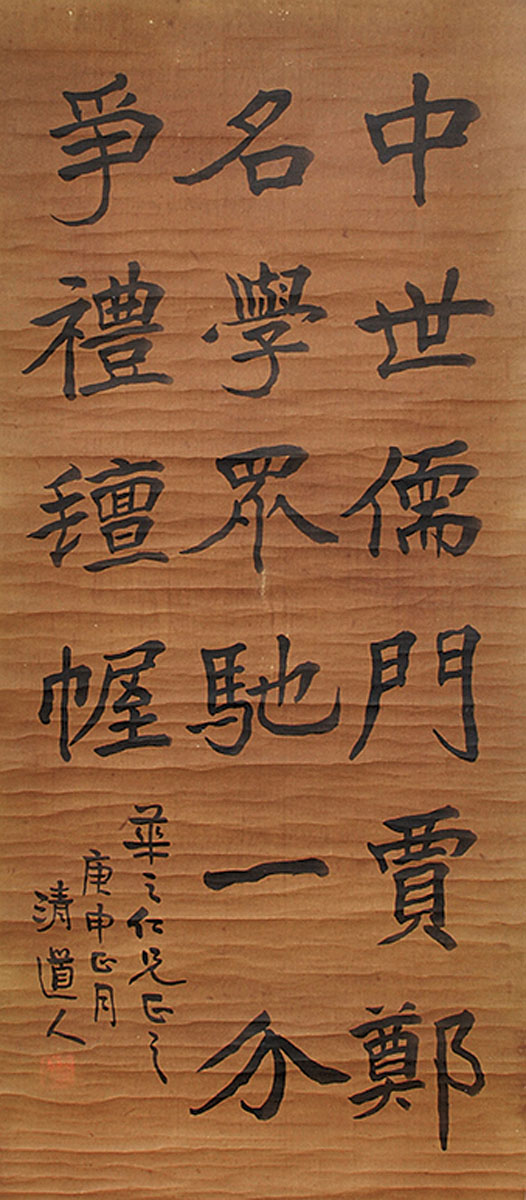 中世儒門賈鄭
名學眾馳一分
爭禮氊幄
華之仁兄正之
庚申正月
清道人